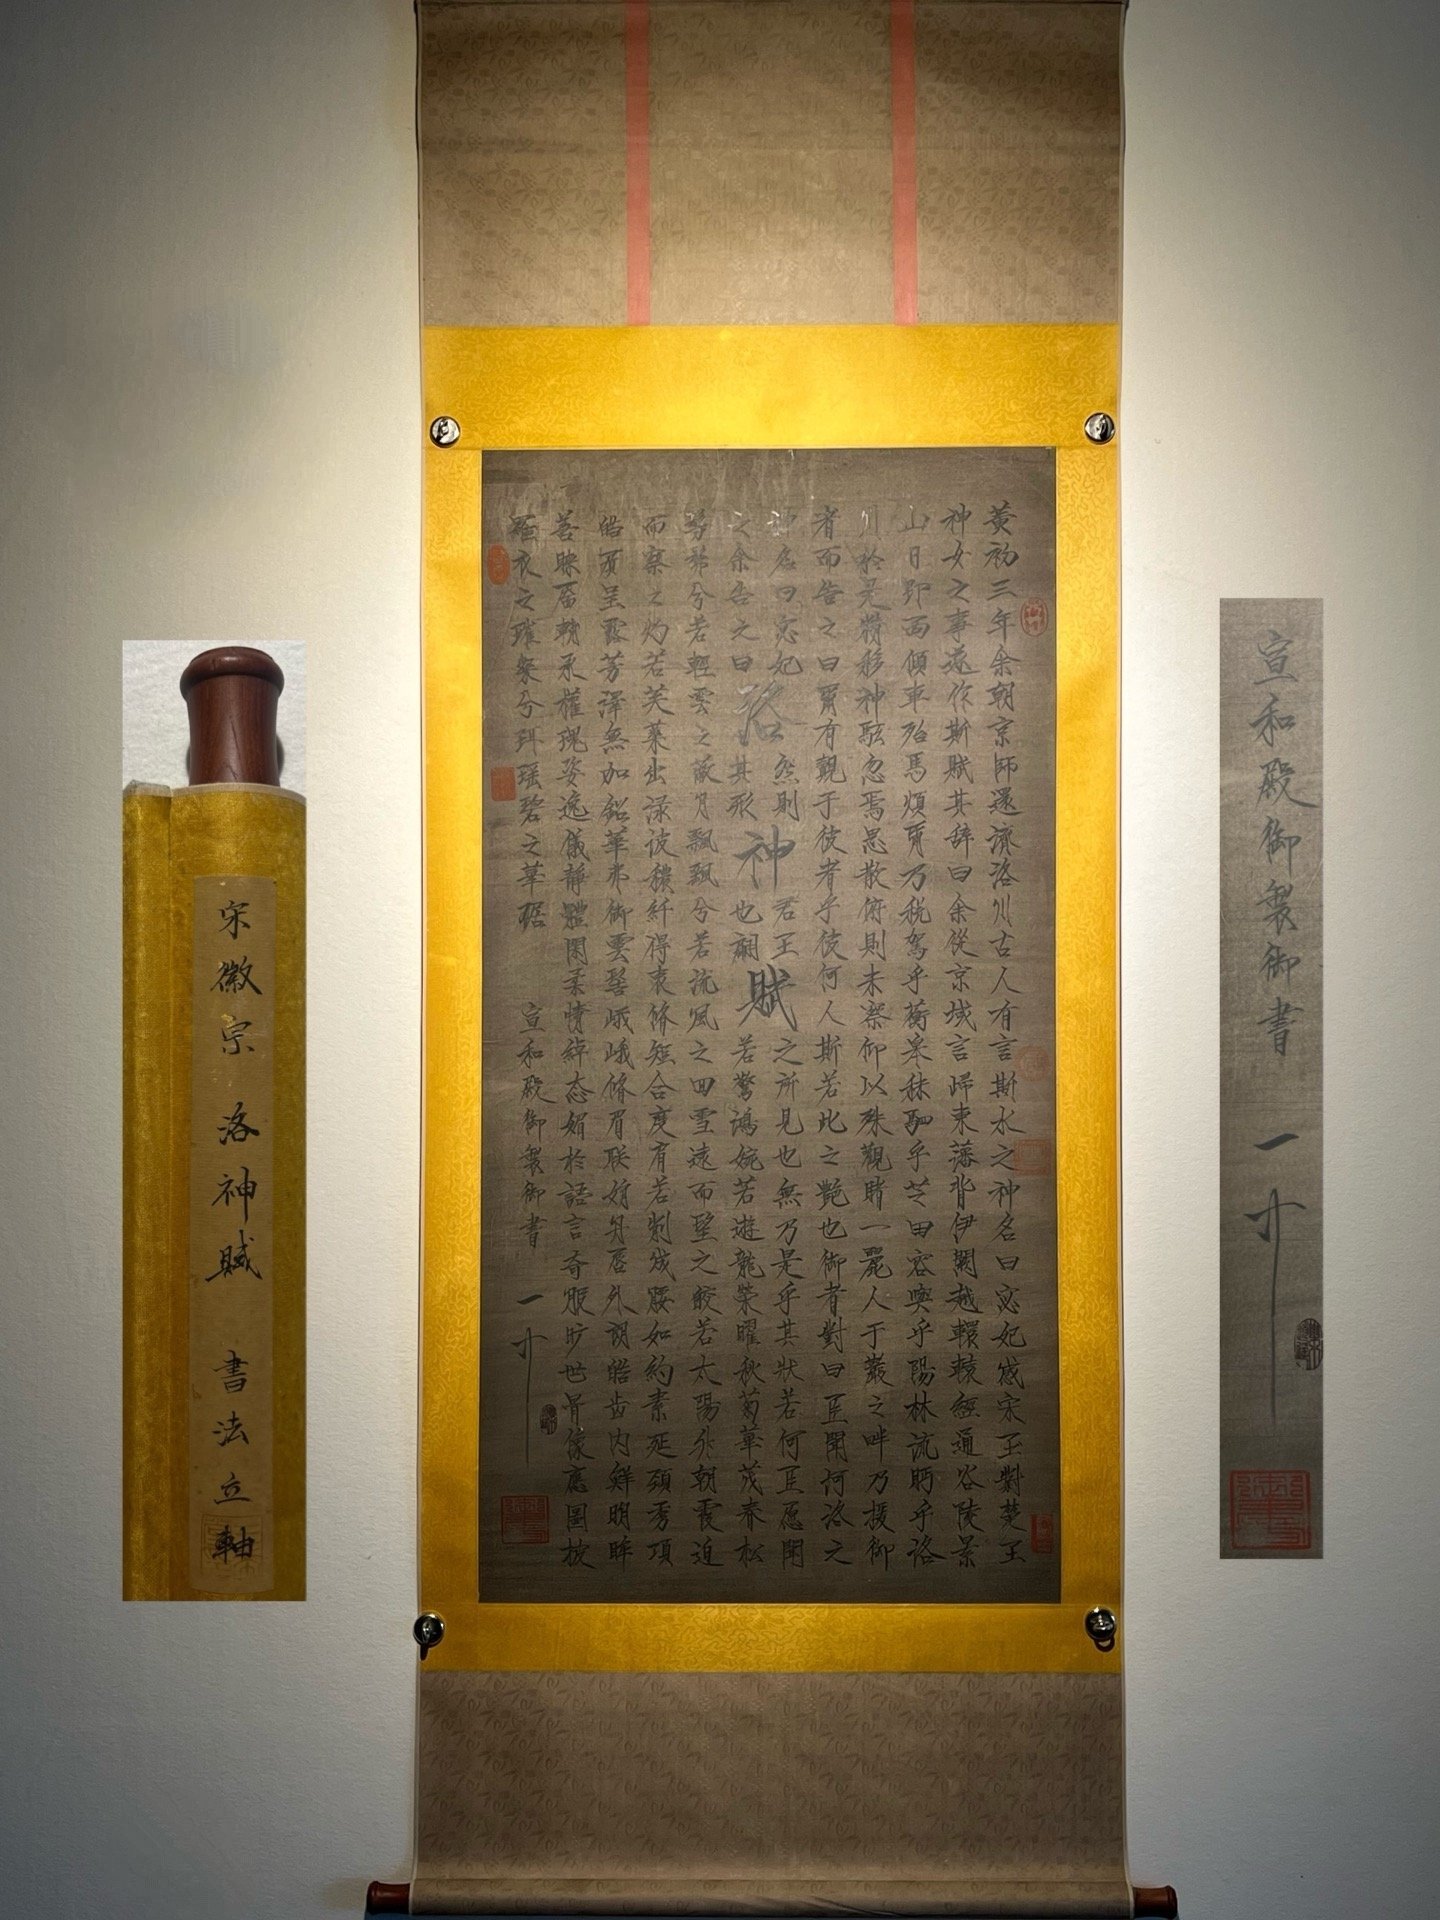 黃初三年余朝京師還濟洛川古人有言斯水之神名曰宓妃感宋玉對楚王
神女之事遂作斯賦其辭曰余從京域言歸東藩背伊闕越轘轅經通谷陵景
山日即西傾車殆馬煩爾乃稅駕乎蘅皋秣駟乎芝田容與乎陽林流眄乎洛
川於是精移神駭忽焉思散俯則未察仰以殊觀睹一麗人于巖之畔乃援御
者而告之曰爾有覿于彼者乎彼何人斯若此之艷也御者對曰臣聞河洛之
神名曰宓妃然則君王之所見也無乃是乎其狀若何臣愿聞
洛神賦
之余告之曰其形也翩若驚鴻婉若遊龍榮曜秋菊華茂春松
髣髴兮若輕雲之蔽月飄飄兮若流風之回雪遠而望之皎若太陽升朝霞迫
而察之灼若芙蕖出淥波穠纖得衷脩短合度肩若削成腰如約素延頸秀項
皓質呈露芳澤無加鉛華弗御雲髻峨峨脩眉聯娟丹唇外朗皓齒内鮮明眸
善睞靨輔承權瑰姿逸儀靜體閑柔情綽态媚於語言奇服旷世骨像應圖披
羅衣之璀粲兮珥瑤碧之華琚
宣和殿御製御書
宋徽宗 洛神賦 書法立軸
宣和殿御製御書